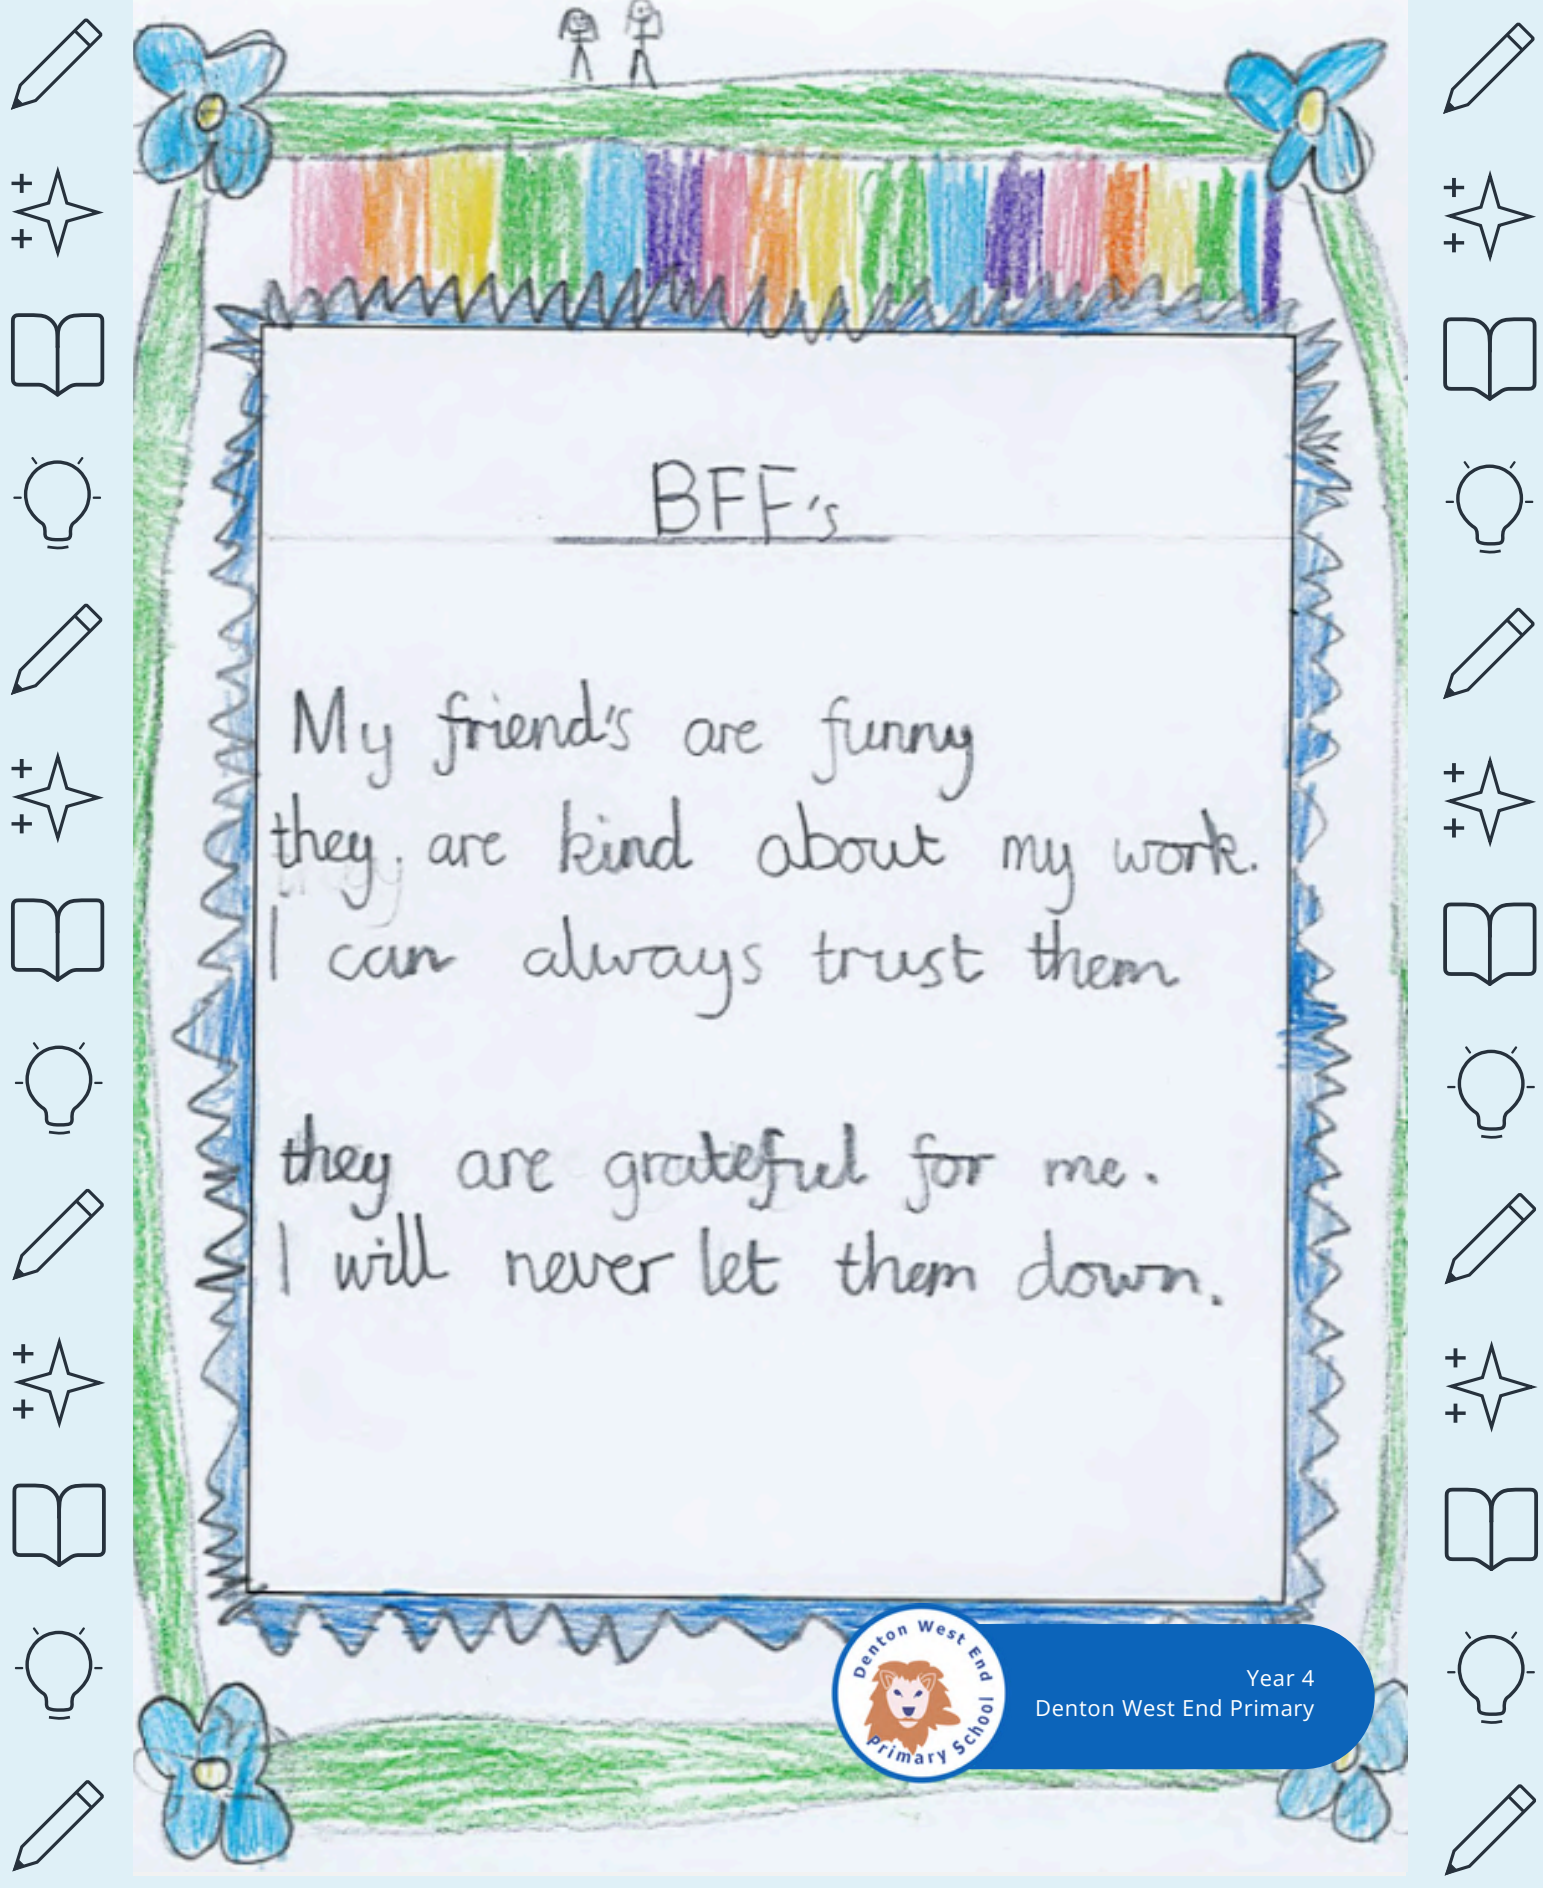 BFF's
My friend's are funny
they are kind about my work.
I can always trust them
they are grateful for me.
I will never let them down.
Denton West End Primary School
Year 4
Denton West End Primary